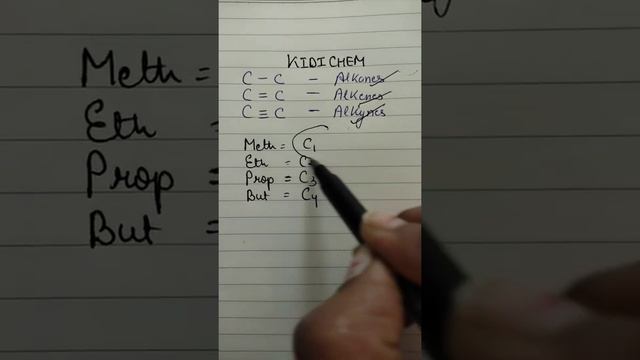 Meth =
Eth
Prop =
But =
KIDICHEM
C - C - Alkanes
C = C - Alkenes
C ≡ C - Alkynes
Meth = C1
Eth = C2
Prop = C3
But = C4